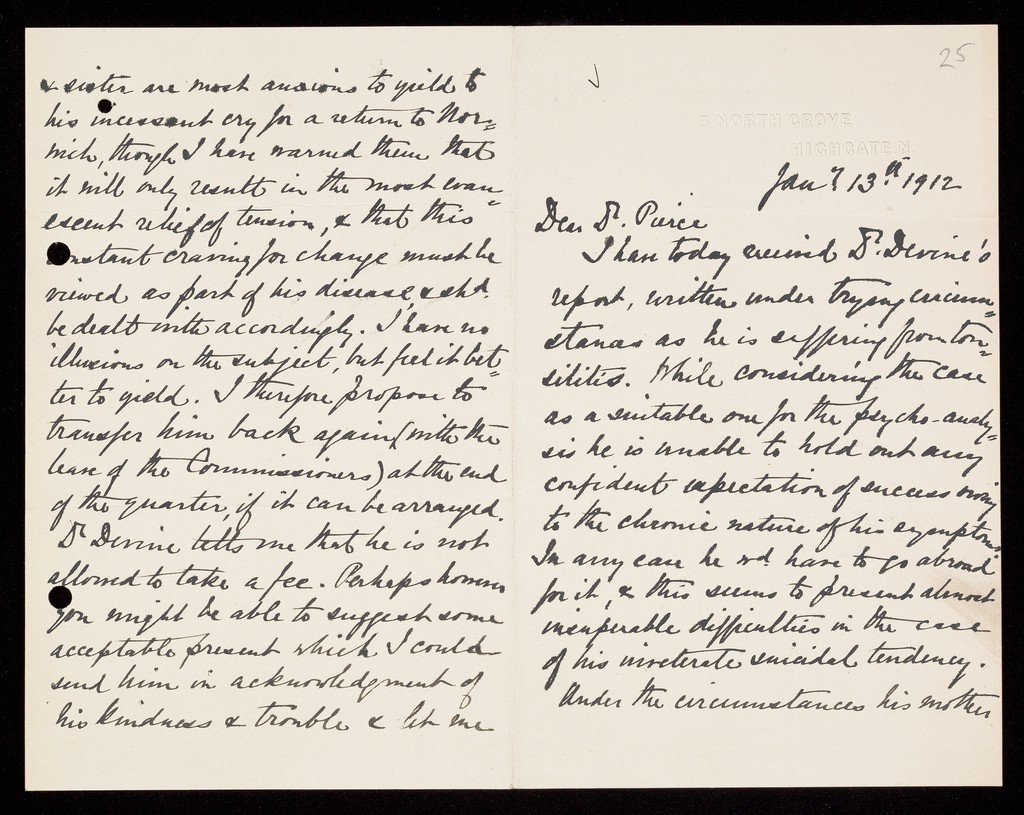 25
5, NORTH GROVE
HIGHGATE, N.
Jany 13th 1912
Dear Dr. Pierce
I have today received Dr. Devine's
report, written under trying circum=
stances as he is suffering from ton=
silitis. While considering the case
as a suitable one for the psycho-analy=
sis he is unable to hold out any
confident expectation of success owing
to the chronic nature of his symptoms.
In any case he wd. have to go abroad
for it, & this seems to present almost
insuperable difficulties in the case
of his inveterate suicidal tendency.
Under the circumstances his mother
& sister are most anxious to yield to
his incessant cry for a return to Nor=
wich, though I have warned them that
it will only result in the most evan=
escent relief of tension, & that this
constant craving for change must be
viewed as part of his disease & shd.
be dealt with accordingly. I have no
illusions on the subject, but feel it bet=
ter to yield. I therefore propose to
transfer him back again (with the
leave of the Commissioners) at the end
of the quarter, if it can be arranged.
Dr Devine tells me that he is not
allowed to take a fee. Perhaps however
you might be able to suggest some
acceptable present which I could
send him in acknowledgment of
his kindness & trouble & let me